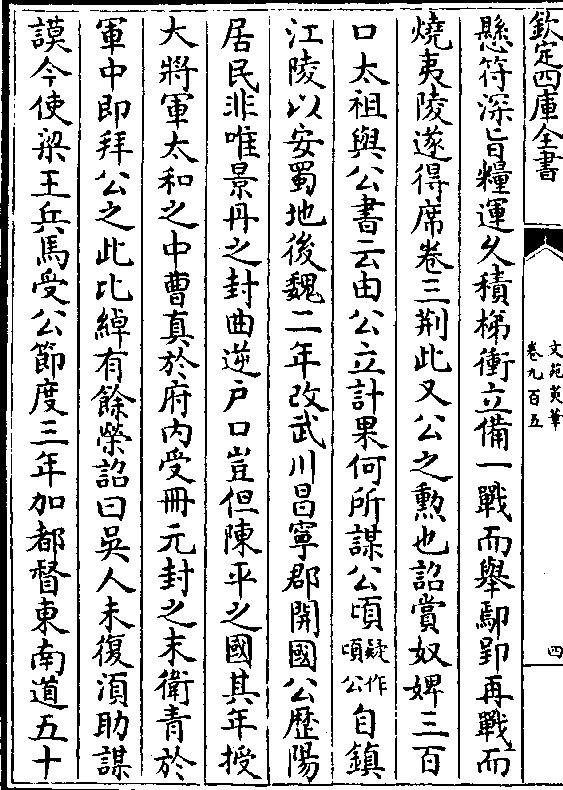 欽定四庫全書
文苑英華
卷九百五
四
懸符深旨糧運久積梯衝立備一戰而舉鄢郢再戰而
燒夷陵遂得席卷三荆此又公之勲也詔賞奴婢三百
口太祖與公書云由公立計果何所謀公頃疑作頃公自鎮
江陵以安蜀地後魏二年改武川昌寧郡開國公歷陽
居民非唯景丹之封曲逆户口豈但陳平之國其年授
大將軍太和之中曹真於府内受冊元封之末衛青於
軍中即拜公之此比綽有餘榮詔曰吳人未復湏助謀
謨今使梁王兵馬受公節度三年加都督東南道五十